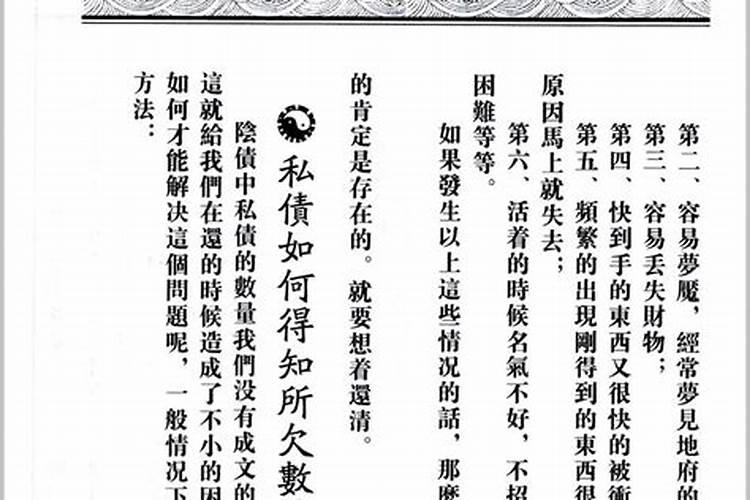 第二、容易夢魘，經常夢見地府的
第三、容易丢失財物；
第四、快到手的東西又很快的被衝
第五、頻繁的出現剛得到的東西很
原因馬上就失去；
第六、活着的時候名氣不好，不招
困難等等。
如果發生以上這些情况的話，那麽
的肯定是存在的。就要想着還清。
私債如何得知所欠數
陰債中私債的數量我們没有成文的
這就給我們在還的時候造成了不小的困
如何才能解决這個問題呢，一般情况下
方法：